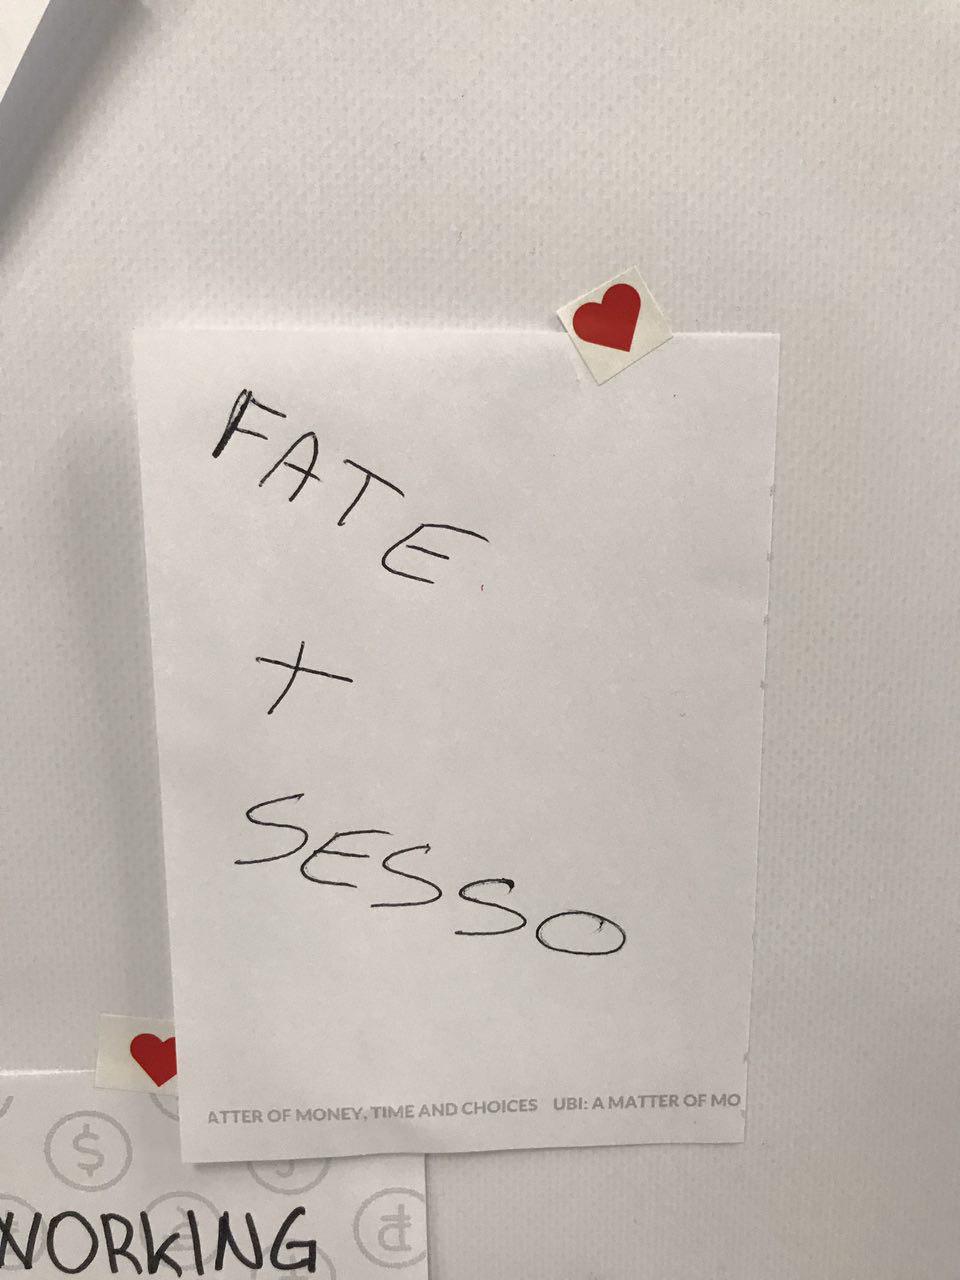 FATE
+
SESSO
ATTER OF MONEY, TIME AND CHOICES UBI: A MATTER OF MO
$
WORKING